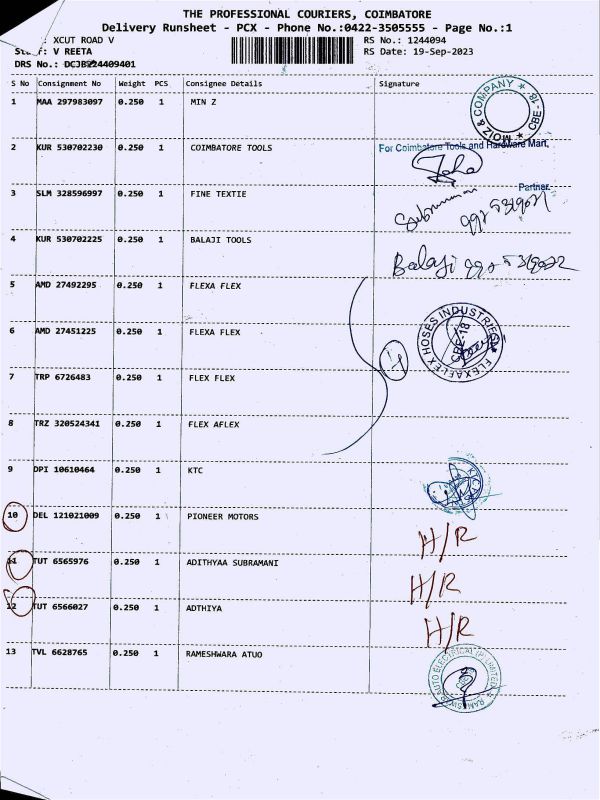 THE PROFESSIONAL COURIERS, COIMBATORE
Delivery Runsheet - PCX - Phone No.:0422-3505555 - Page No.:1
: XCUT ROAD V RS No.: 1244094
: V REETA RS Date: 19-Sep-2023
DRS No.:
S No Consignment No Weight PCS Consignee Details Signature
1 MAA 297983097 0.250 1 MIN Z MOIZ & COMPANY * CBE - 18 *
2 KUR 530702230 0.250 1 COIMBATORE TOOLS For Coimbatore Tools and Hardware Mart,
Partner
3 SLM 328596997 0.250 1 FINE TEXTIE
4 KUR 530702225 0.250 1 BALAJI TOOLS Balaji
5 AMD 27492295 0.250 1 FLEXA FLEX
6 AMD 27451225 0.250 1 FLEXA FLEX FLEXAFLEX HOSES INDUSTRIES CBE-18
7 TRP 6726483 0.250 1 FLEX FLEX
8 TRZ 320524341 0.250 1 FLEX AFLEX
9 DPI 10610464 0.250 1 KTC
10 DEL 121021009 0.250 1 PIONEER MOTORS H/R
11 TUT 6565976 0.250 1 ADITHYAA SUBRAMANI H/R
12 TUT 6566027 0.250 1 ADTHIYA H/R
13 TVL 6628765 0.250 1 RAMESHWARA ATUO